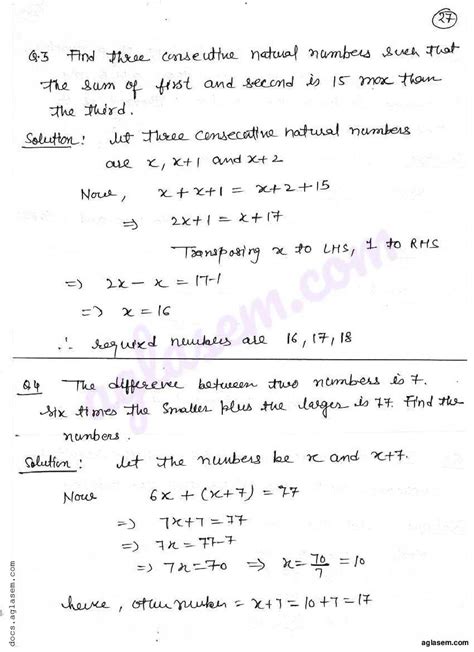 27
Q.3 Find three consecutive natural numbers such that
the sum of first and second is 15 more than
the third.
Solution: let three consecutive natural numbers
are x, x+1 and x+2
Now, x + x+1 = x+2+15
⇒ 2x+1 = x+17
Transposing x to LHS, 1 to RHS
⇒ 2x - x = 17-1
⇒ x = 16
∴ required numbers are 16, 17, 18
Q4 The difference between two numbers is 7.
Six times the smaller plus the larger is 77. Find the
numbers.
Solution: let the numbers be x and x+7.
Now 6x + (x+7) = 77
⇒ 7x+7 = 77
⇒ 7x = 77-7
⇒ 7x = 70 ⇒ x = 70/7 = 10
hence, other number = x+7 = 10+7 = 17
aglasem.com
docs.aglasem.com
aglasem.com